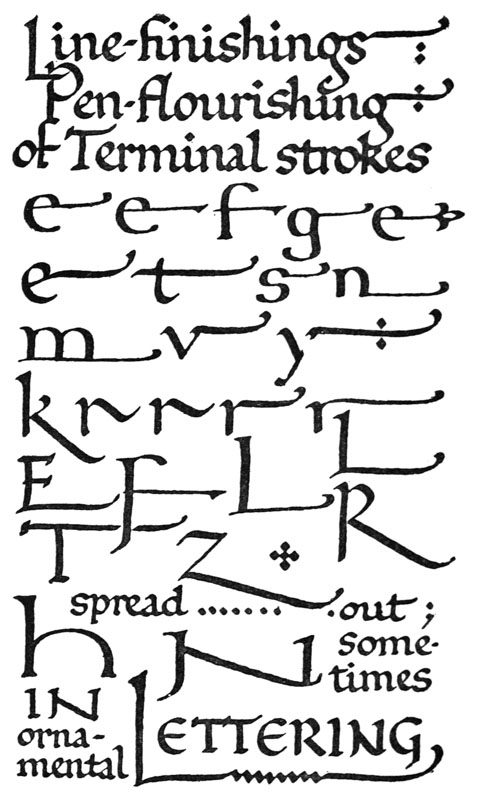 Line-finishings :
Pen-flourishing
of Terminal strokes
e e f g e
e t s n
m v y
k r r r r L
E F L R
T Z
spread ....... .out ;
h N some-
times
IN
orna-
mental LETTERING